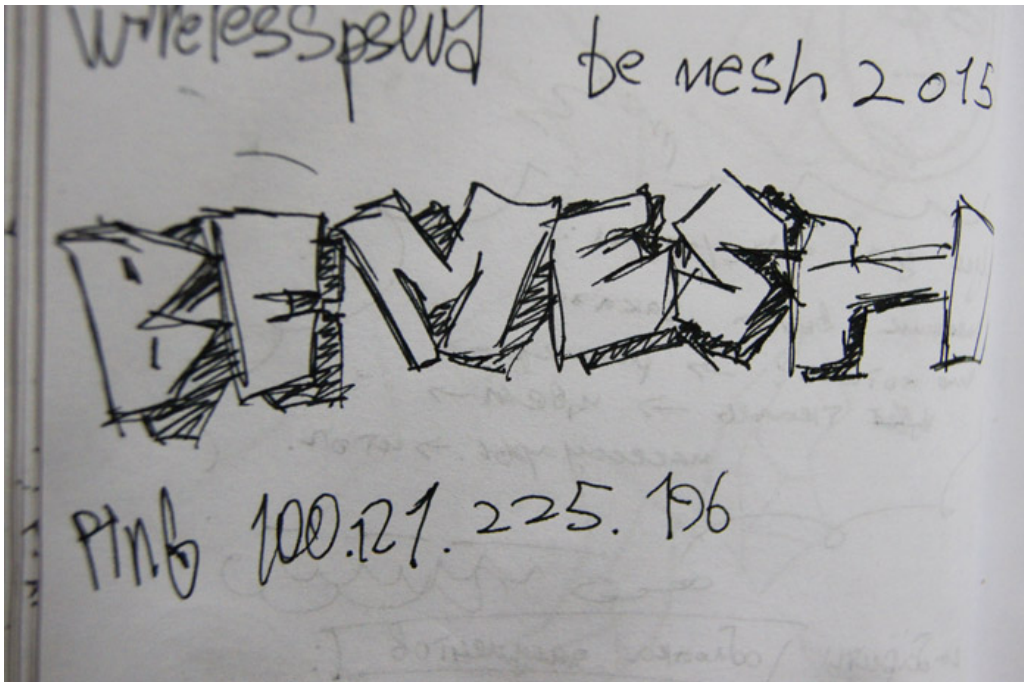 wirelesspswd be mesh 2015
BEMESH
PING 100.121.225.196